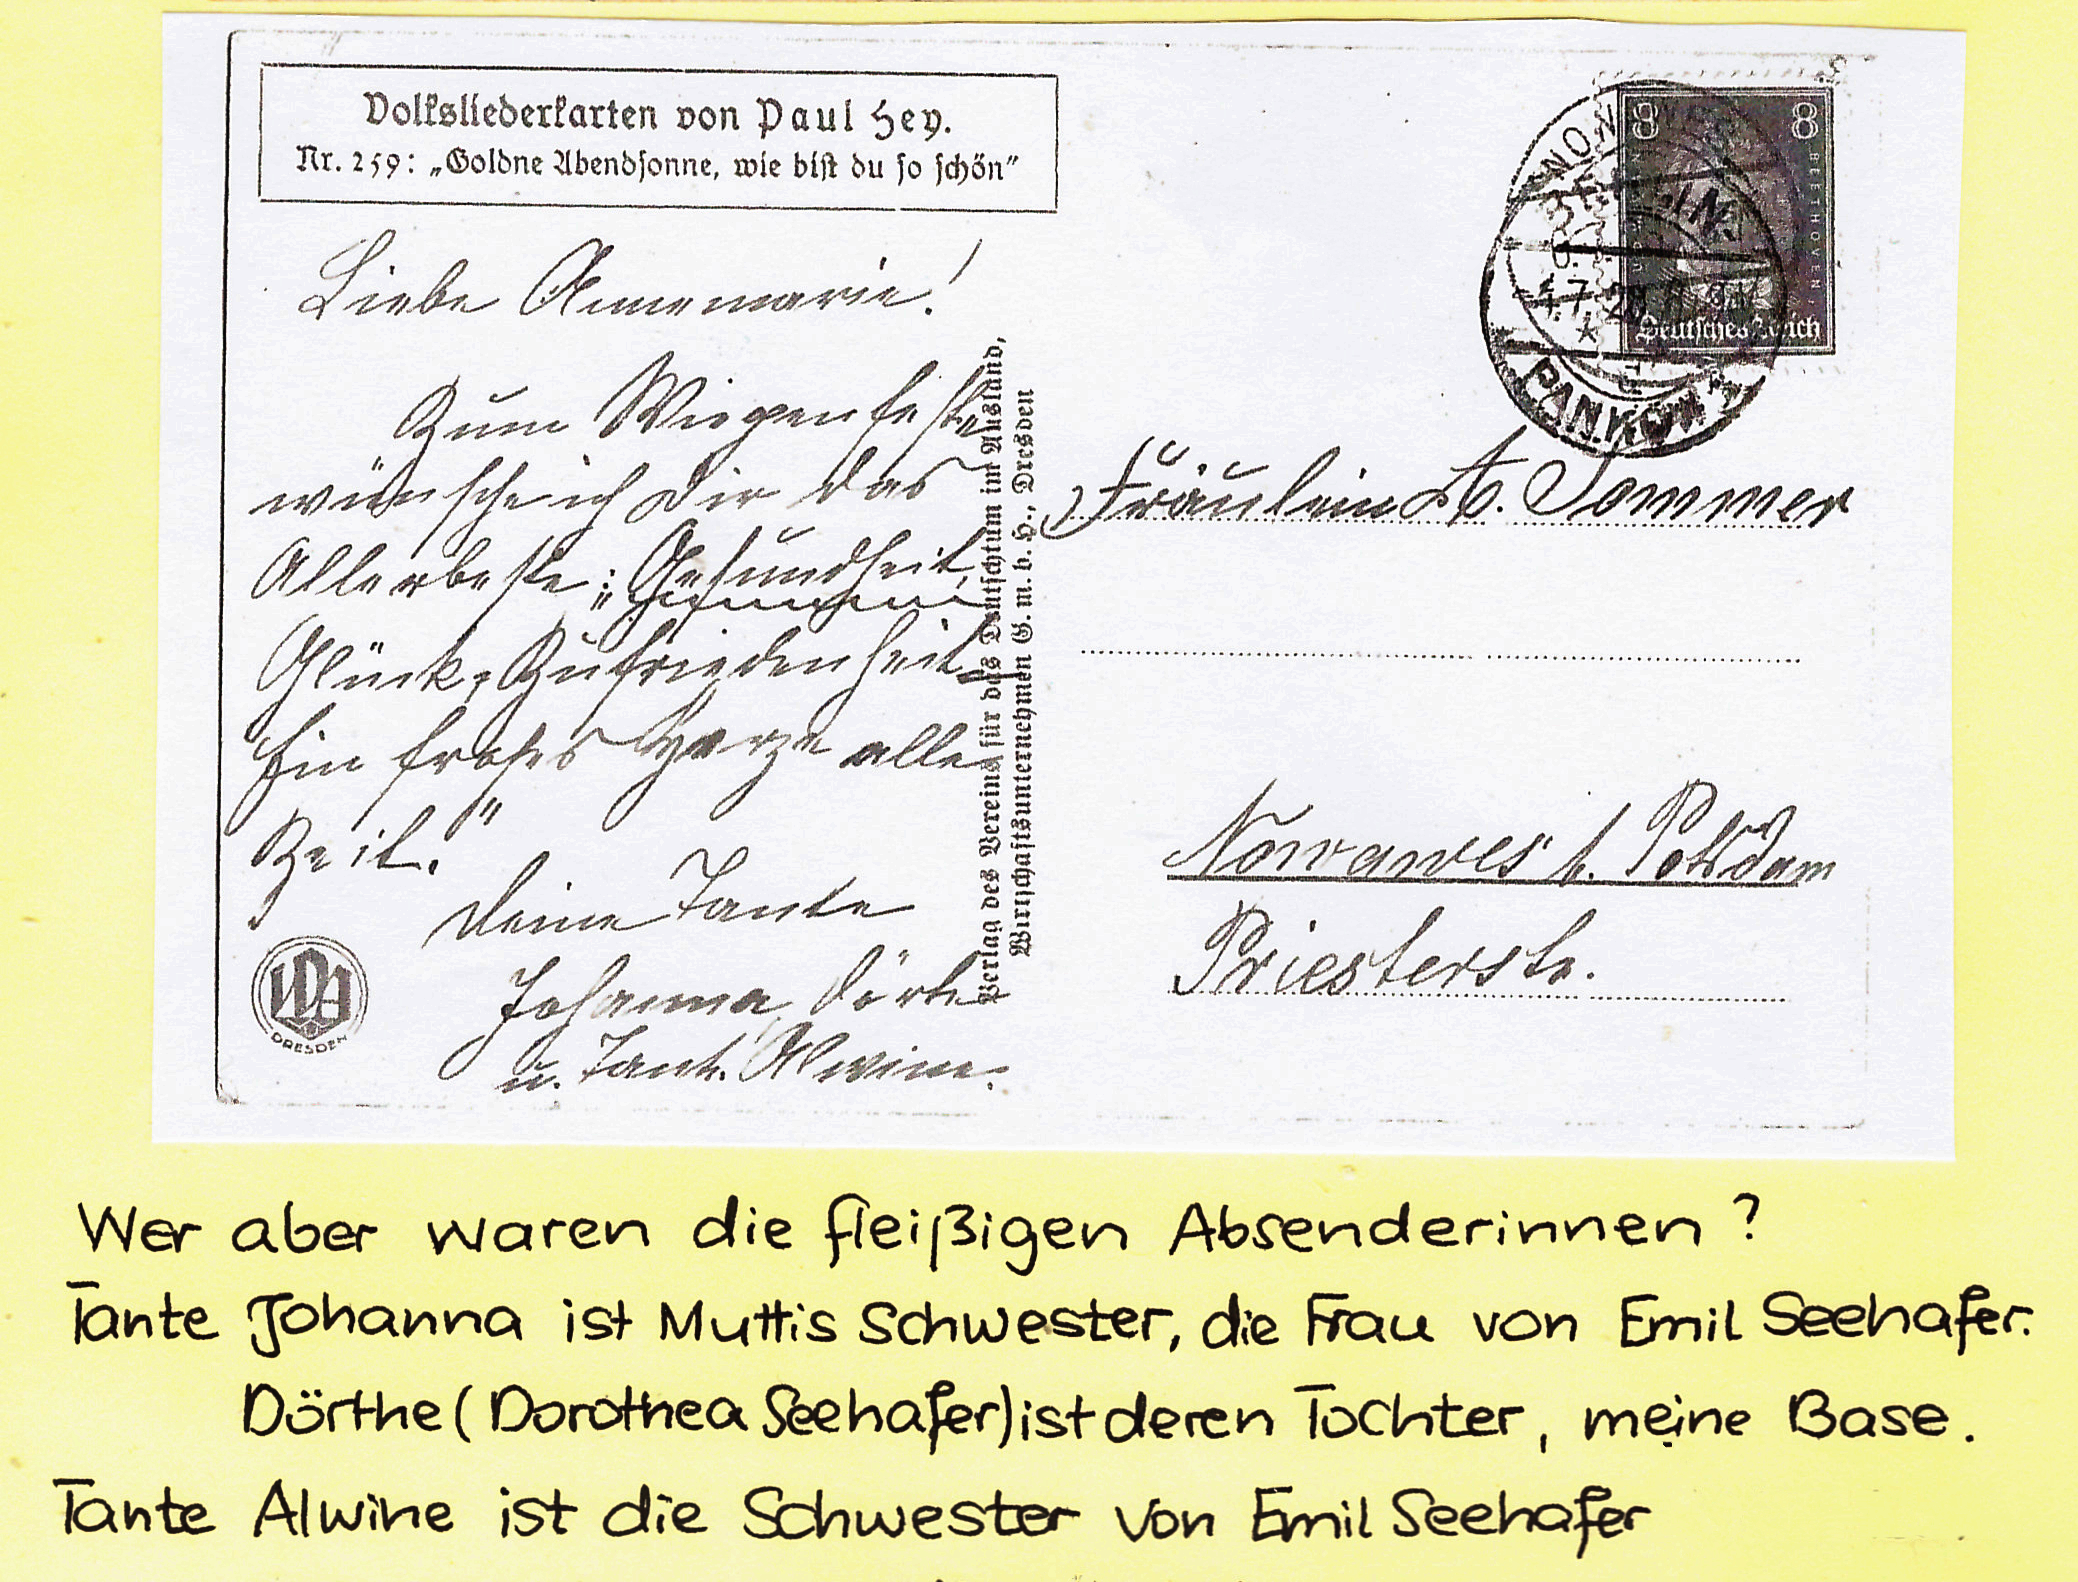 Volksliederkarten von Paul Hey.
Nr. 259: „Goldne Abendsonne, wie bist du so schön“
Liebe Annemarie!
Zum Wiegenfeste
wünsche ich Dir das
Allerbeste: „Gesundheit,
Glück, Zufriedenheit
Ein frohes Herze alle
Zeit.“
Deine Tante
Johanna, Dörte
u. Tante Alwine.
DRESDEN
Verlag des Vereins für das Deutschtum im Ausland,
Wirtschaftsunternehmen G. m. b. H., Dresden
8 8
BEETHOVEN
Deutsches Reich
BERLIN
PANKOW
Fräulein A. Sommer
Nowawes b. Potsdam
Priesterstr.
Wer aber waren die fleißigen Absenderinnen?
Tante Johanna ist Muttis Schwester, die Frau von Emil Seehafer.
Dörthe (Dorothea Seehafer) ist deren Tochter, meine Base.
Tante Alwine ist die Schwester von Emil Seehafer